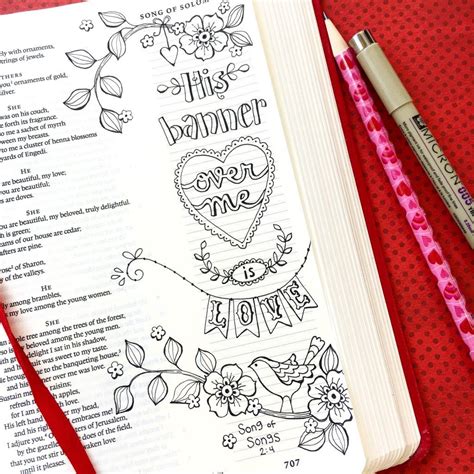 SONG OF SOLOM
ly with ornaments,
strings of jewels.
THERS
ornaments of gold,
silver.
SHE
was on his couch,
to me a sachet of myrrh
between my breasts.
to me a cluster of henna blossoms
yards of Engedi.
HE
are beautiful, my love;
are beautiful;
SHE
are beautiful, my beloved, truly delightful.
is green;
our house are cedar;
are pine.
SHE
rose of Sharon,
of the valleys.
HE
among brambles,
my love among the young women.
SHE
tree among the trees of the forest,
my beloved among the young men.
delight I sat in his shadow,
was sweet to my taste.
me to the banqueting house,
banner over me was love.
with raisins;
with apples,
with love.
left hand is under my head,
right hand embraces me!
I adjure you, O daughters of Jerusalem,
or the does of the field,
not stir up or awaken love
until it pleases.
His
banner
over
me
is
LOVE
Song of
Songs
2:4
707
MICRON 005